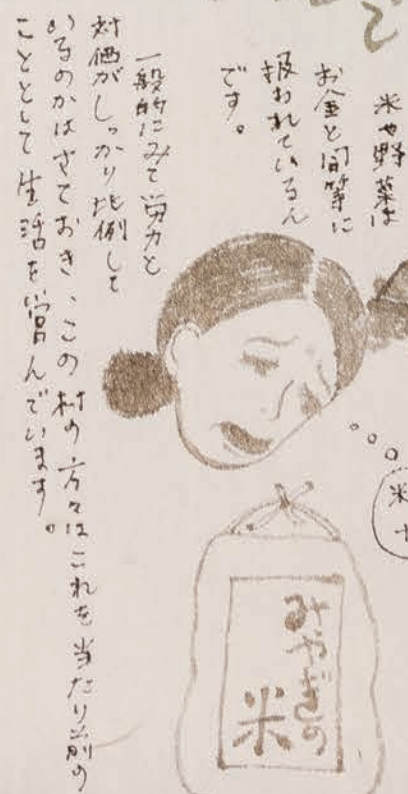 で
米や野菜は
お金と同等に
扱われているん
です。
一般的にみて労力と
対価がしっかり比例して
いるのかはさておき、この村の方々はこれを当たり前の
こととして生活を営んでいます。
米十
みやぎの
米